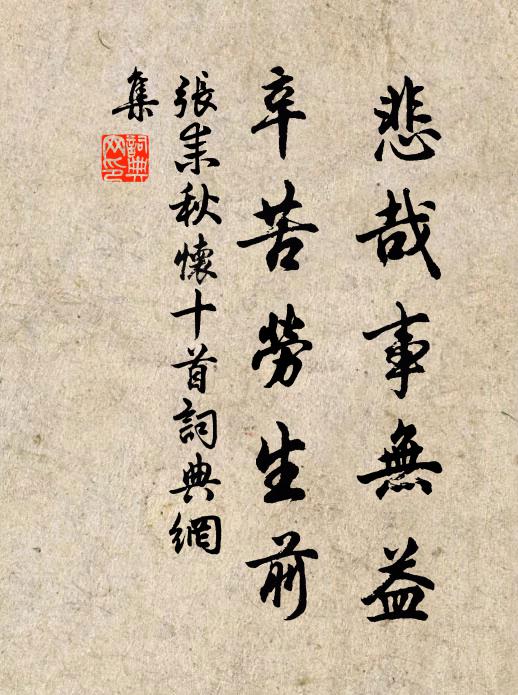 悲哉事無益
辛苦勞生前
張耒秋懷十首詞典網
集
詞典
网印